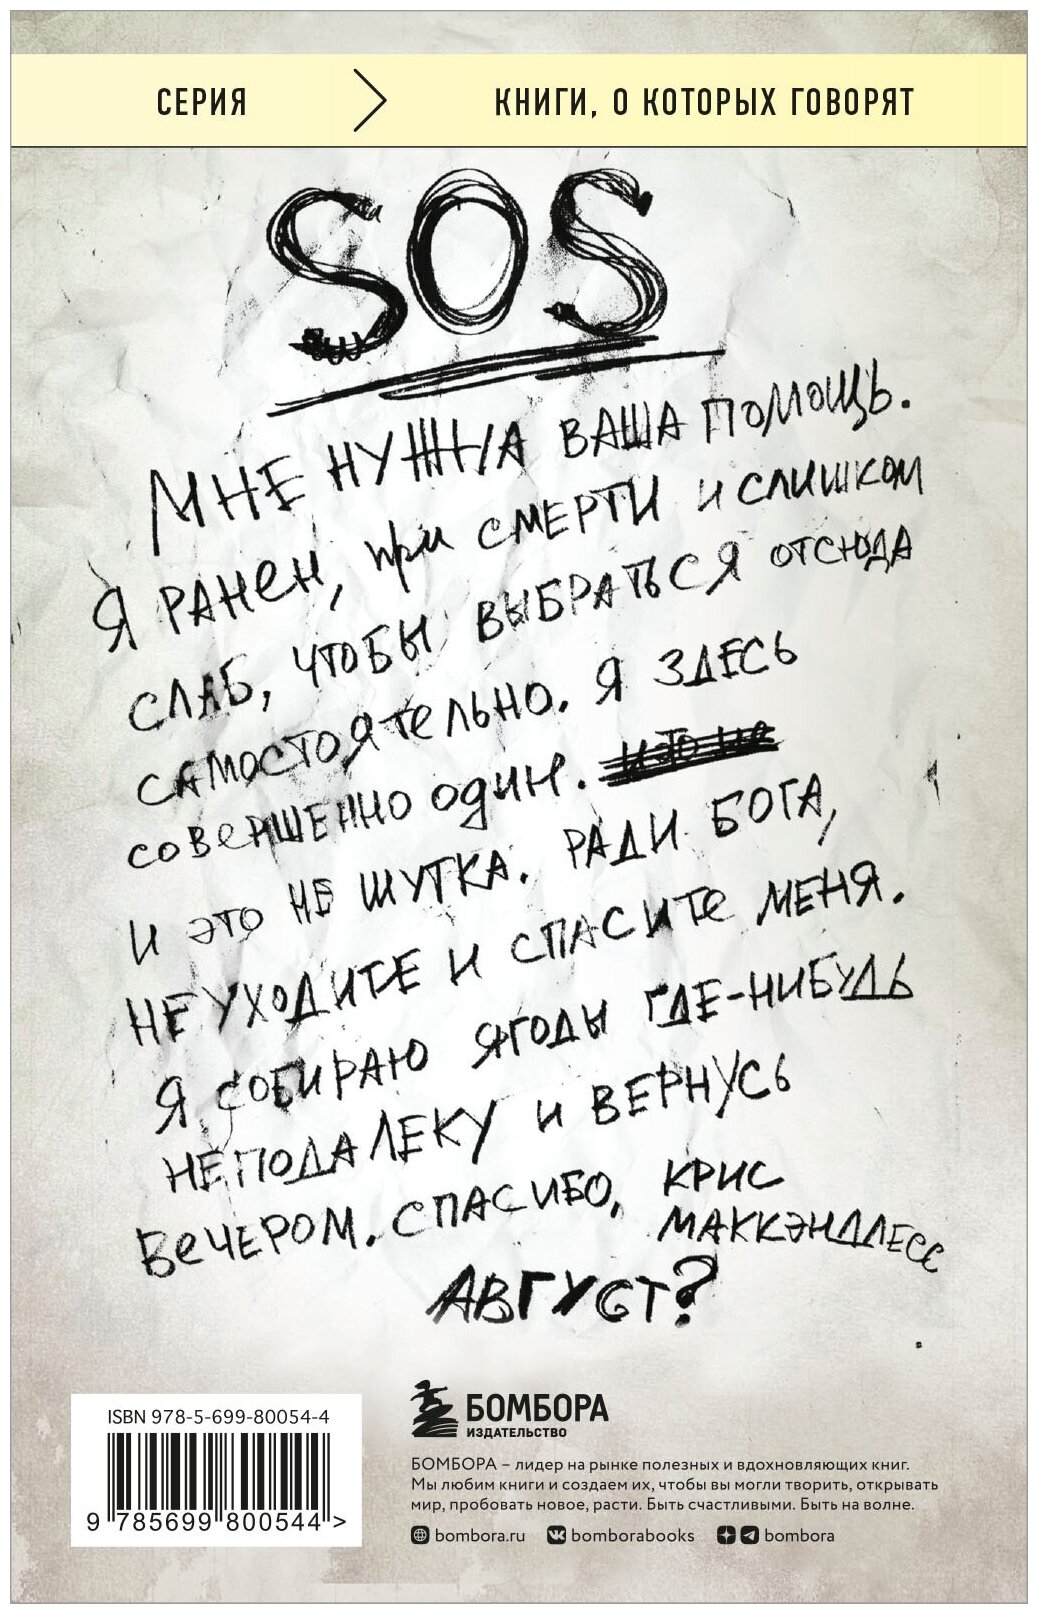 СЕРИЯ > КНИГИ, О КОТОРЫХ ГОВОРЯТ
SOS
МНЕ НУЖНА ВАША ПОМОЩЬ.
Я РАНЕН, ПРИ СМЕРТИ И СЛИШКОМ
СЛАБ, ЧТОБЫ ВЫБРАТЬСЯ ОТСЮДА
САМОСТОЯТЕЛЬНО. Я ЗДЕСЬ
СОВЕРШЕННО ОДИН.
И ЭТО НЕ ШУТКА. РАДИ БОГА,
НЕ УХОДИТЕ И СПАСИТЕ МЕНЯ.
Я СОБИРАЮ ЯГОДЫ ГДЕ-НИБУДЬ
НЕПОДАЛЕКУ И ВЕРНУСЬ
ВЕЧЕРОМ. СПАСИБО, КРИС
МАККЭНДЛЕСС
АВГУСТ?
ISBN 978-5-699-80054-4
9 785699 800544 >
БОМБОРА
ИЗДАТЕЛЬСТВО
БОМБОРА – лидер на рынке полезных и вдохновляющих книг.
Мы любим книги и создаем их, чтобы вы могли творить, открывать
мир, пробовать новое, расти. Быть счастливыми. Быть на волне.
bombora.ru bomborabooks bombora